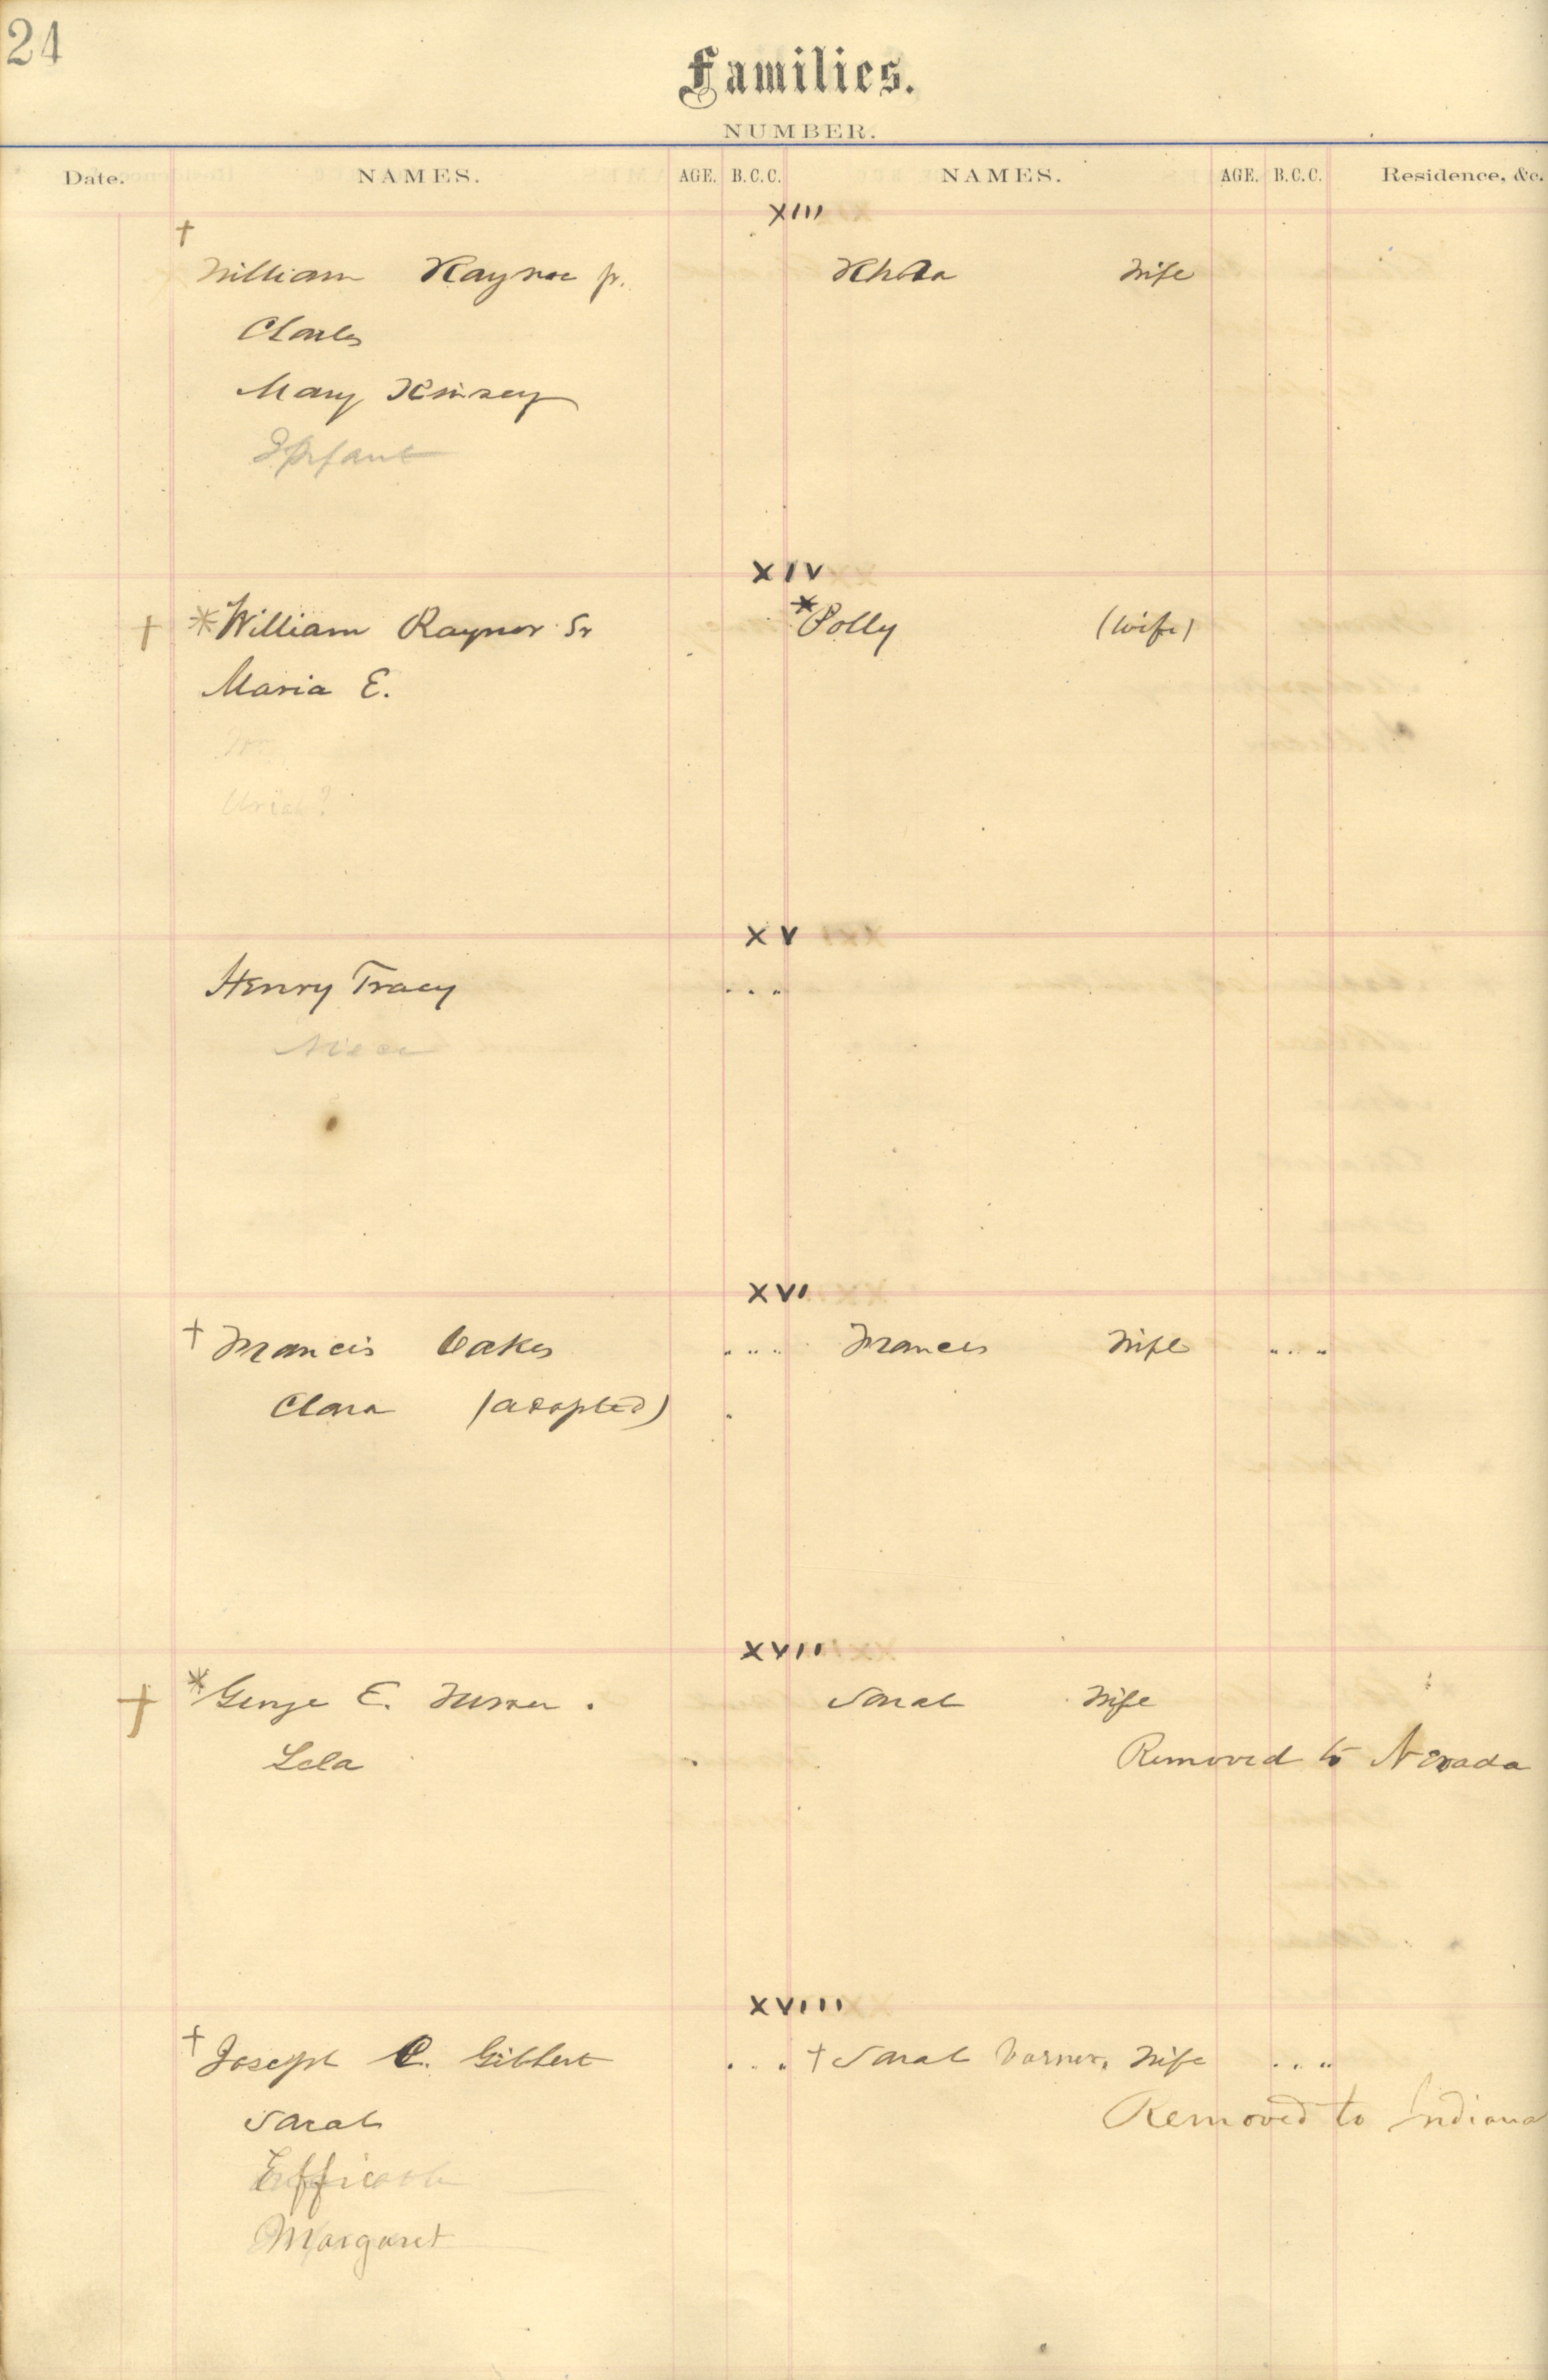 24
Families.
NUMBER.
Date. NAMES. AGE. B.C.C. NAMES. AGE. B.C.C. Residence, &c.
XIII
†
William Raynor jr. Rhoda Wife
Charles
Mary Kinsey
Infant
XIV
† * William Raynor Sr * Polly (wife)
Maria E.
Uriah?
XV
Henry Tracy " " "
Niece
XVI
† Francis Oakes " " " Frances Wife " " "
Clara (adopted) "
XVII
† * George E. Turner. Sarah Wife
Lela Removed to Nevada
XVIII
† Joseph C. Gilbert " " " † Sarah Varner, Wife " " "
Sarah Removed to Indiana
Margaret